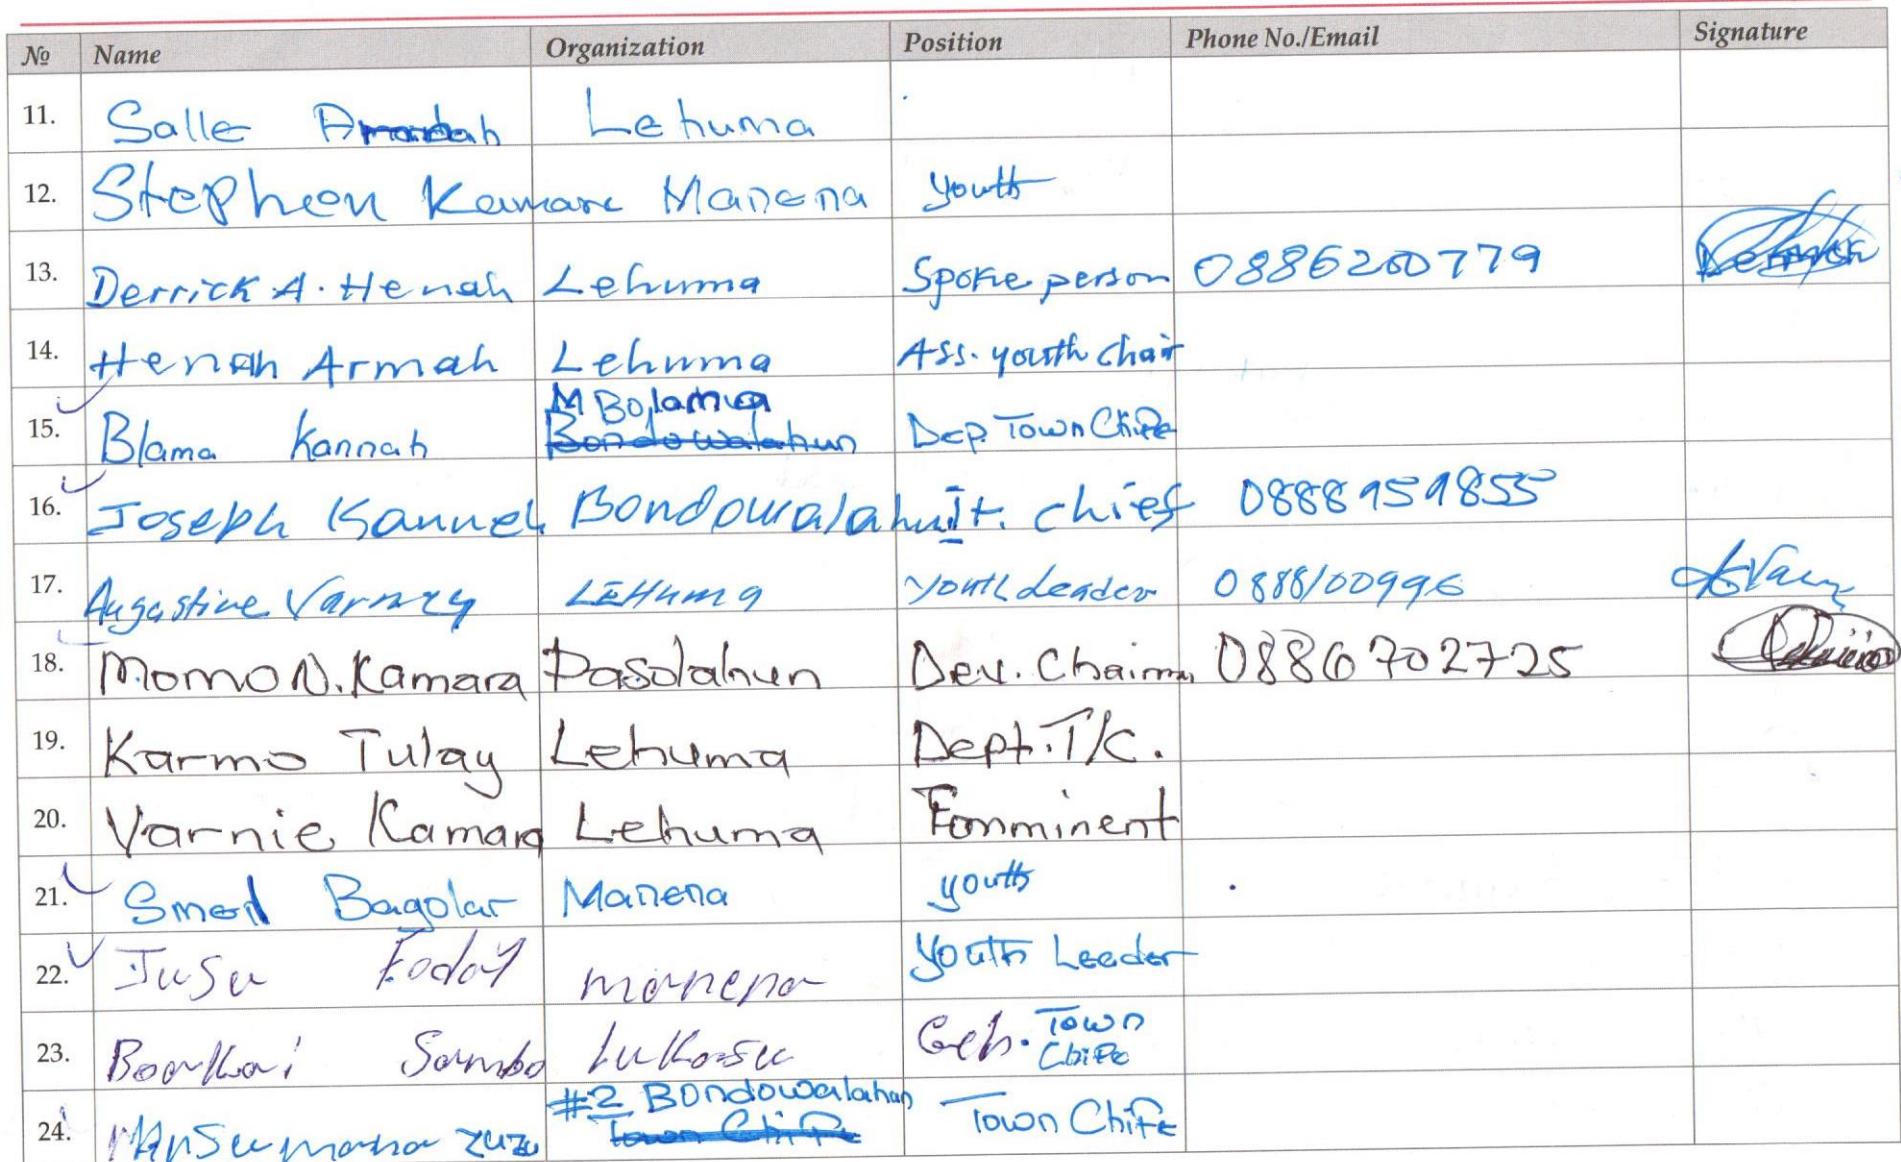 № Name Organization Position Phone No./Email Signature
11. Salle Lehuma
12. Stephen Kamara Manena youth
13. Derrick A. Henah Lehuma Spoke person 0886200779
14. Henah Armah Lehuma Ass. youth chair
15. Blama Kannah M Bolamua Bondowalahun Dep. Town Chife
16. Joseph Kanneh Bondowalahun T. chief 0888959855
17. Augastine Varney LEHuma youth Leader 0888100996
18. Momo N. Kamara Pasolahun Dev. Chairm 0886702725
19. Karmo Tulay Lehuma Dept. T/C.
20. Varnie Kamara Lehuma Fomminent
21. Bagolar Manena youth
22. Jusu Foday manena youth Leader
23. Boakai Sambo Lukasu Town Chife
24. Mansumana zuzu #2 Bondowalahan Town Chife Town Chife